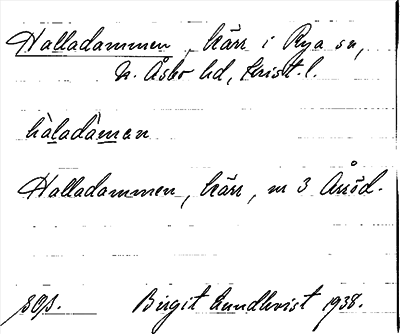 Halladammen, kärr i Rya sn,
N. Åsbo hd, Krist. l.
hàladàmen
Halladammen, kärr, m 3 Åröd.
Birgit Lundkvist 1938.